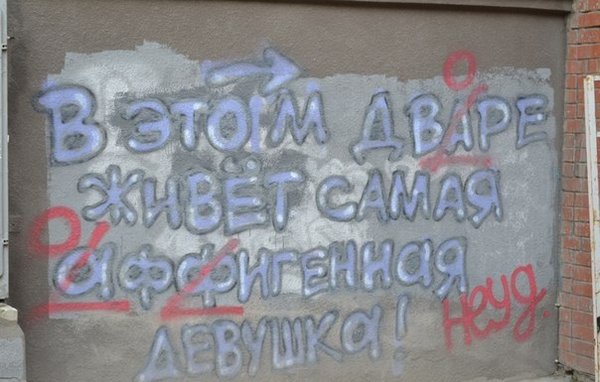 В ЭТОМ ДВАРЕ
ЖИВЁТ САМАЯ
аффигенная
ДЕВУШКА!
о
о
Неуд.